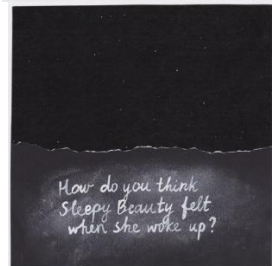 How do you think
Sleepy Beauty felt
when she woke up?